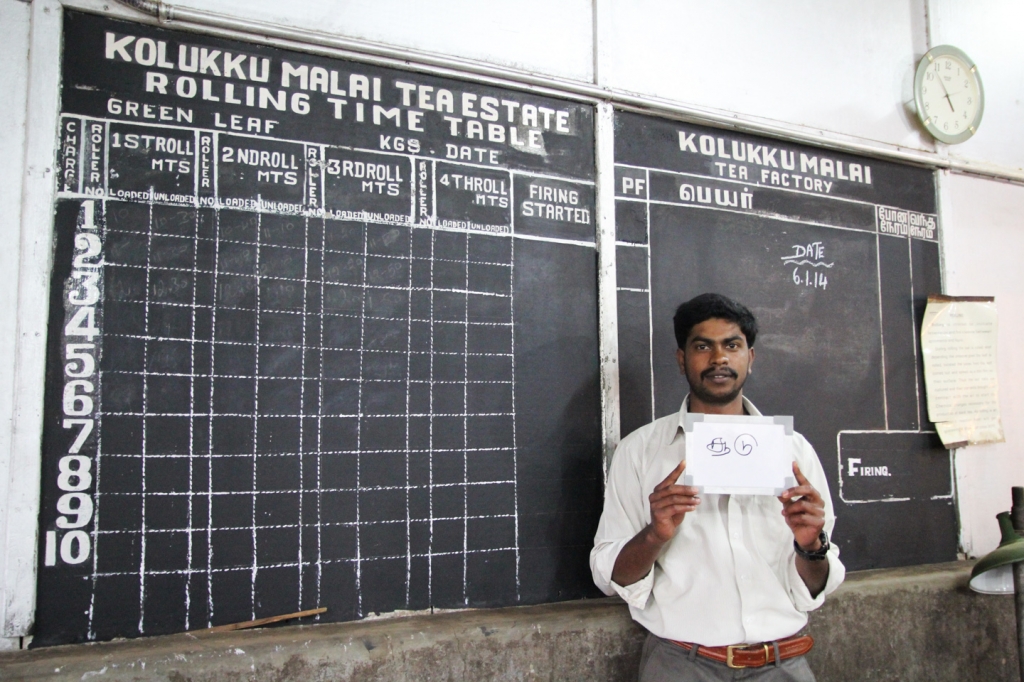 KOLUKKU MALAI TEA ESTATE
ROLLING TIME TABLE
GREEN LEAF KGS DATE
CHARGE ROLLER NO 1ST ROLL MTS LOADED UNLOADED ROLLER NO 2ND ROLL MTS LOADED UNLOADED ROLLER NO 3RD ROLL MTS LOADED UNLOADED ROLLER NO 4TH ROLL MTS LOADED UNLOADED FIRING STARTED
1
2
3
4
5
6
7
8
9
10
KOLUKKU MALAI
TEA FACTORY
PF பெயர் போன நேரம் வந்த நேரம்
DATE
6.1.14
FIRING.
சூடு